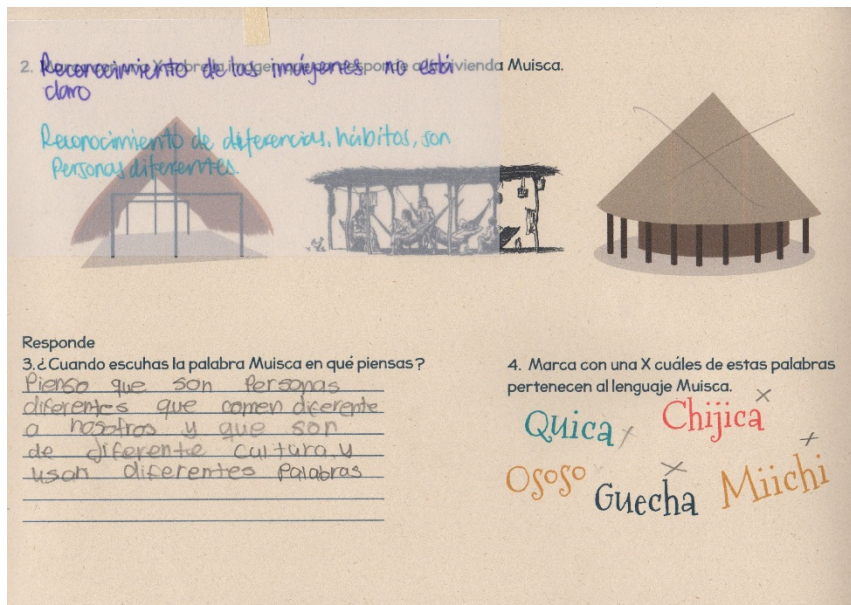 2.
vivienda Muisca.
Reconocimiento de las imágenes no está
claro
Reconocimiento de diferencias, hábitos, son
Personas diferentes.
Responde
3.¿Cuando escuhas la palabra Muisca en qué piensas?
Pienso que son Personas
diferentes que comen diferente
a nosotros y que son
de diferente cultura y
usan diferentes Palabras
4. Marca con una X cuáles de estas palabras
pertenecen al lenguaje Muisca.
Quica
Chijica
Ososo
Guecha
Miichi